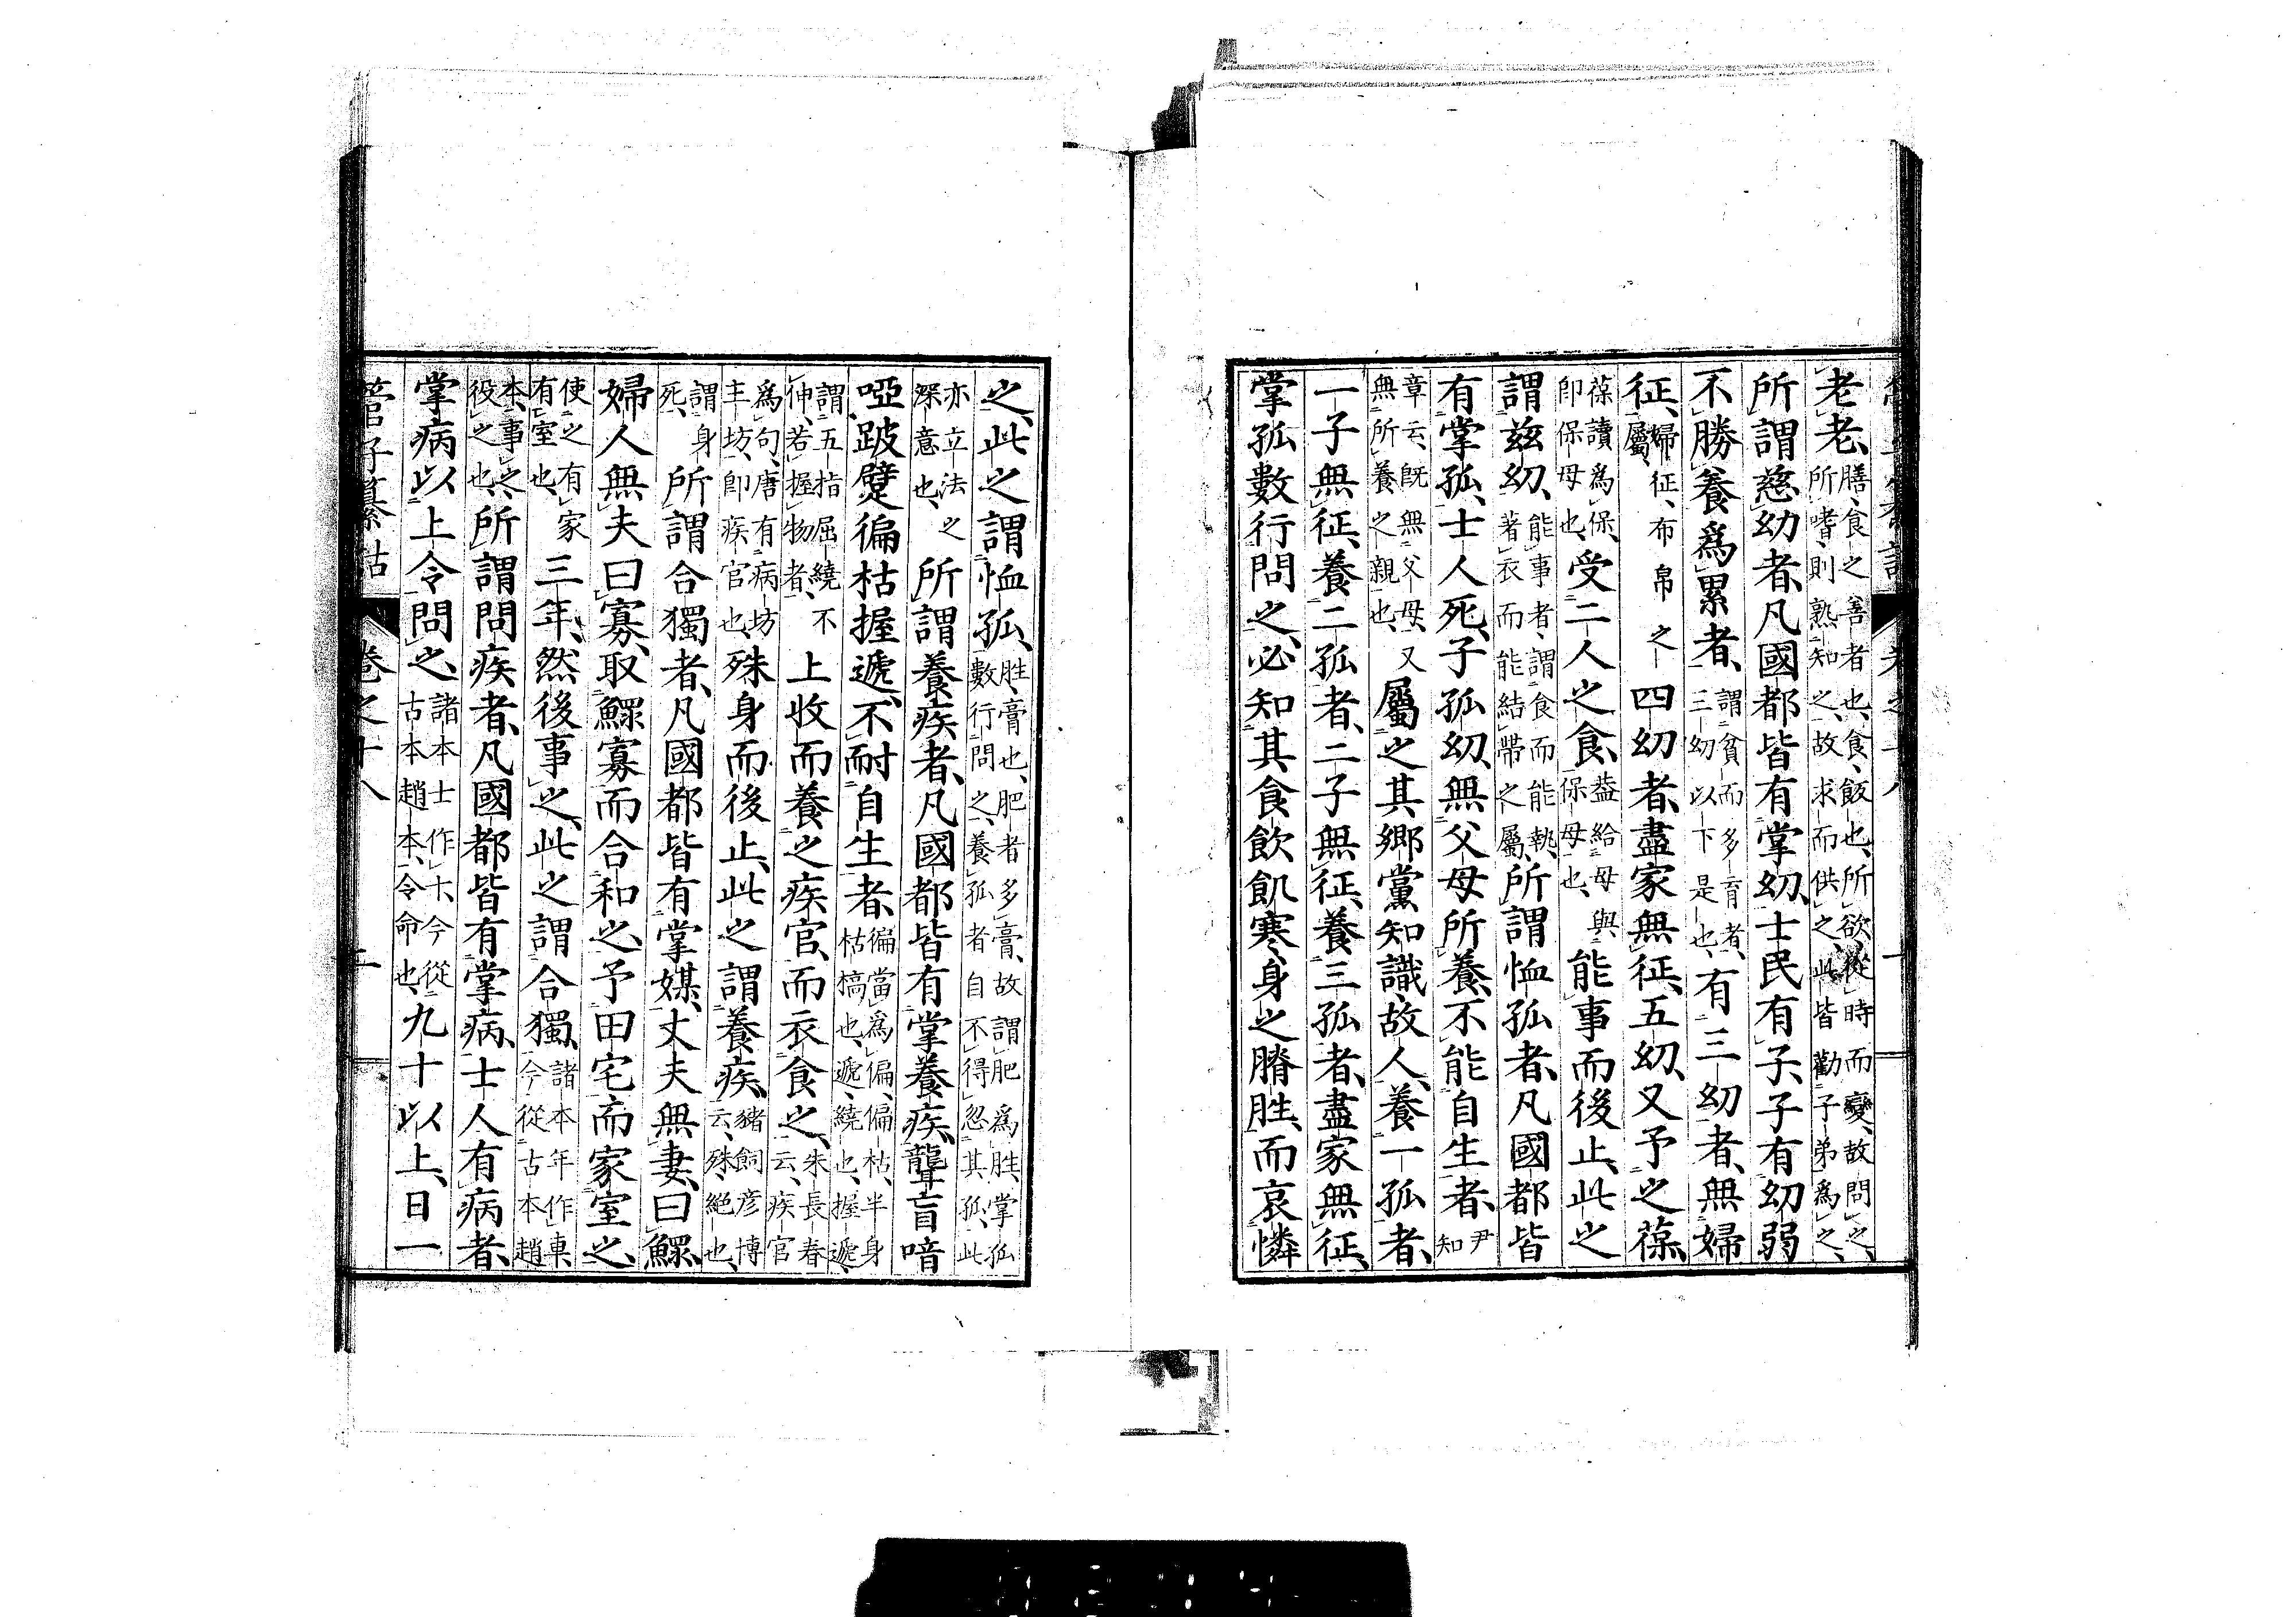 老老、膳、食之善者也、食、飯也、所欲從時而變、故問之、所嗜、則熟知之、故求而供之、此皆勸子弟爲之、
所謂慈幼者、凡國都皆有掌幼、士民有子、子有幼弱
不勝養爲累者、謂貧而多育者、三幼以下是也、有三幼者、無婦
征、婦征、布帛之屬、四幼者、盡家無征、五幼、又予之葆、
葆讀爲保、卽保母也、受二人之食、蓋給母與保母也、能事而後止、此之
謂茲幼、能事者、謂食而能執、著衣而能結帶之屬、所謂恤孤者、凡國都皆
有掌孤、士人死、子孤幼、無父母所養、不能自生者、尹知
章云、旣無父母、又無所養之親也、屬之其鄉黨知識故人、養一孤者、
一子無征、養二孤者、二子無征、養三孤者、盡家無征、
掌孤數行問之、必知其食飲飢寒、身之膌胜、而哀憐
之、此之謂恤孤、胜、膏也、肥者多膏、故謂肥爲胜、掌孤數行問之、養孤者自不得忽其孤、此
亦立法之深意也、所謂養疾者、凡國都皆有掌養疾、聾盲喑
啞跛躄徧枯握遞、不耐自生者、徧當爲偏、偏枯、半身枯槁也、遞、繞也、握遞、
謂五指屈繞不伸、若握物者、上收而養之疾官、而衣食之、朱長春云、疾官
爲句、唐有病坊主坊、卽疾官也、殊身而後止、此之謂養疾、豬飼彥博云、殊、絕也、
謂身死、所謂合獨者、凡國都皆有掌媒、丈夫無妻、曰鰥、
婦人無夫曰寡、取鰥寡而合和之、予田宅、而家室之、
使之有家有室也、三年、然後事之、此之謂合獨、諸本年作車、今從古本趙
本、事之、役之也、所謂問疾者、凡國都皆有掌病、士人有病者、
掌病以上令問之、諸本士作十、今從古本趙本、令命也、九十以上、日一
管子纂詁 卷之十八